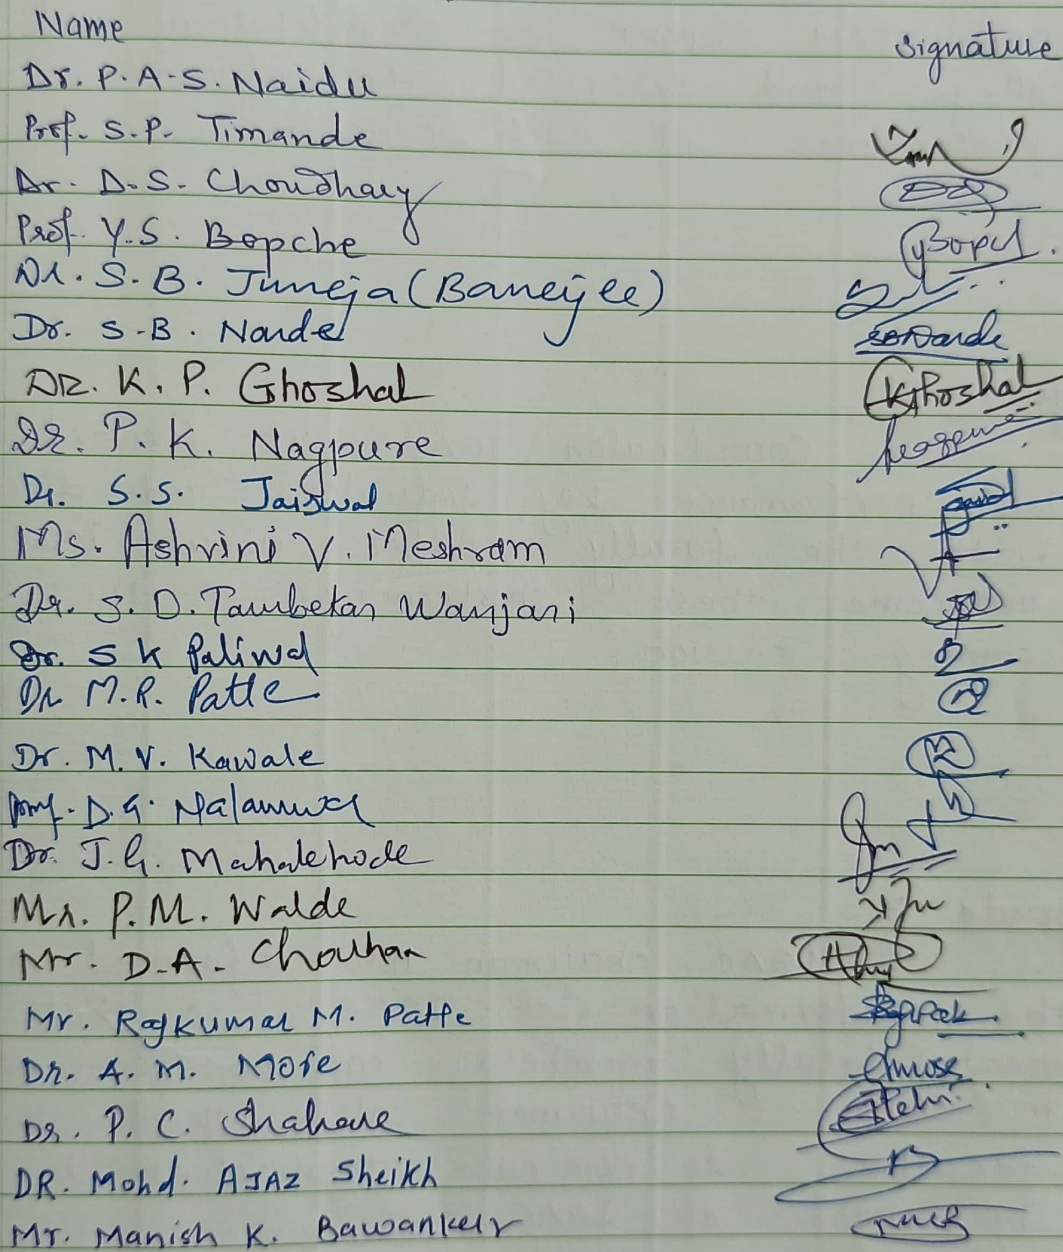 Name signature
Dr. P. A. S. Naidu
Prof. S. P. Timande
Dr. D. S. Choudhary
Prof. Y. S. Bopche Bopch
Dr. S. B. Juneja (Banerjee)
Dr. S. B. Narde SBNarde
DR. K. P. Ghoshal KGhoshal
Dr. P. K. Nagpure
Dr. S. S. Jaiswal
Ms. Ashvini V. Meshram
Dr. S. D. Tambekar Wanjari
Dr. S K Paliwal
Dr M. R. Patle
Dr. M. V. Kawale
Prof. D. G.
Dr. J. G.
Mr. P. M. Walde
Mr. D. A. Chouhan
Mr. Rajkumar M. Patle
Dr. A. M. More Amore
Dr. P. C. Shahare
DR. Mohd. AJAZ Sheikh
Mr. Manish K. Bawankur